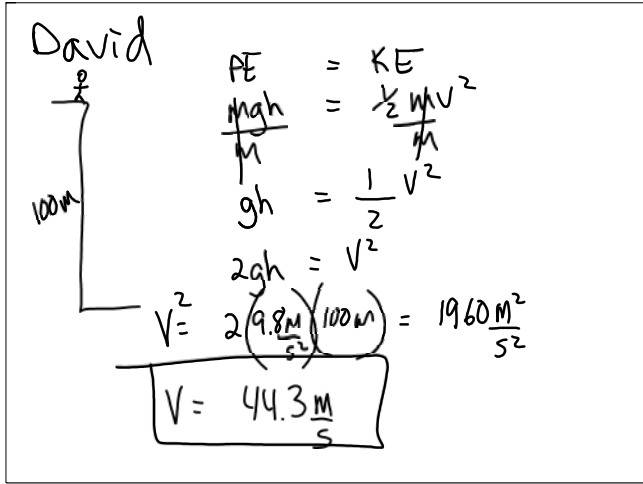 David
PE = KE
mgh/m = 1/2 mv²/m
100m
gh = 1/2 v²
2gh = v²
v² = 2(9.8 m/s²)(100m) = 1960 m²/s²
v = 44.3 m/s